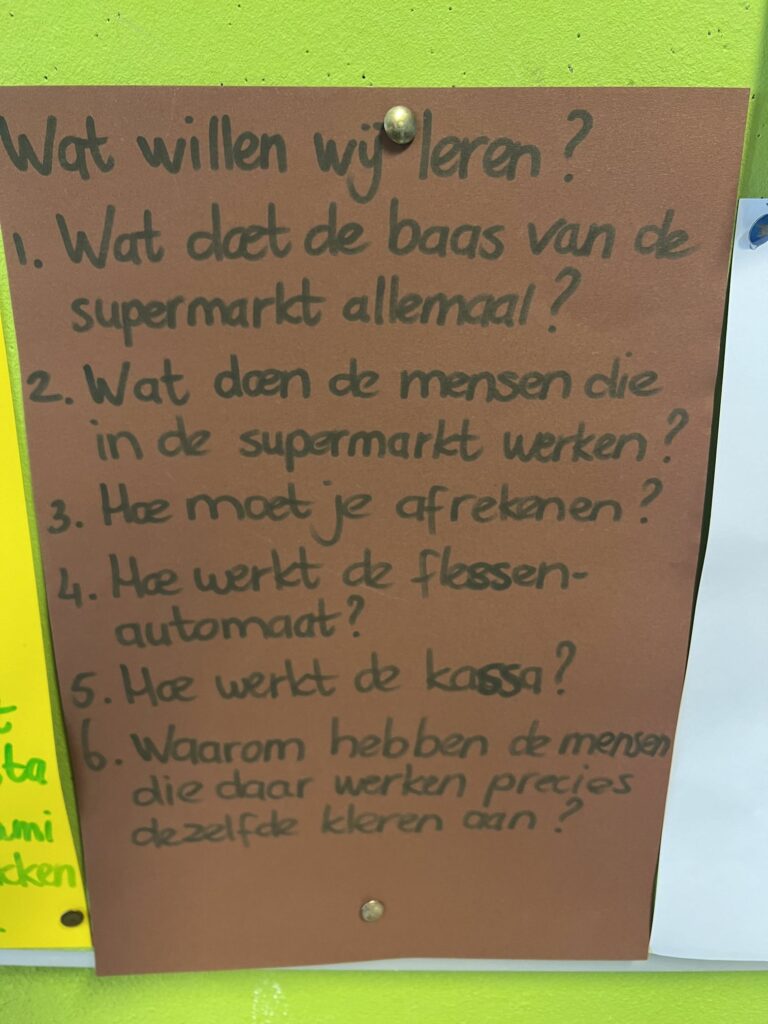 Wat willen wij leren?
1. Wat doet de baas van de
supermarkt allemaal?
2. Wat doen de mensen die
in de supermarkt werken?
3. Hoe moet je afrekenen?
4. Hoe werkt de flessen-
automaat?
5. Hoe werkt de kassa?
6. Waarom hebben de mensen
die daar werken precies
dezelfde kleren aan?